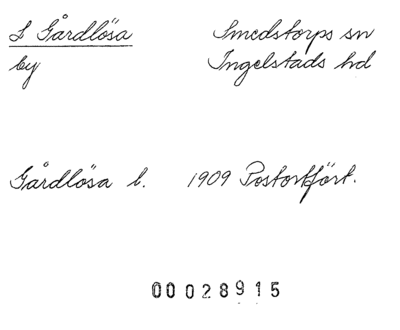 L Gårdlösa Smedstorps sn
by Ingelstads hd
Gårdlösa b. 1909 Postortfört.
00028915